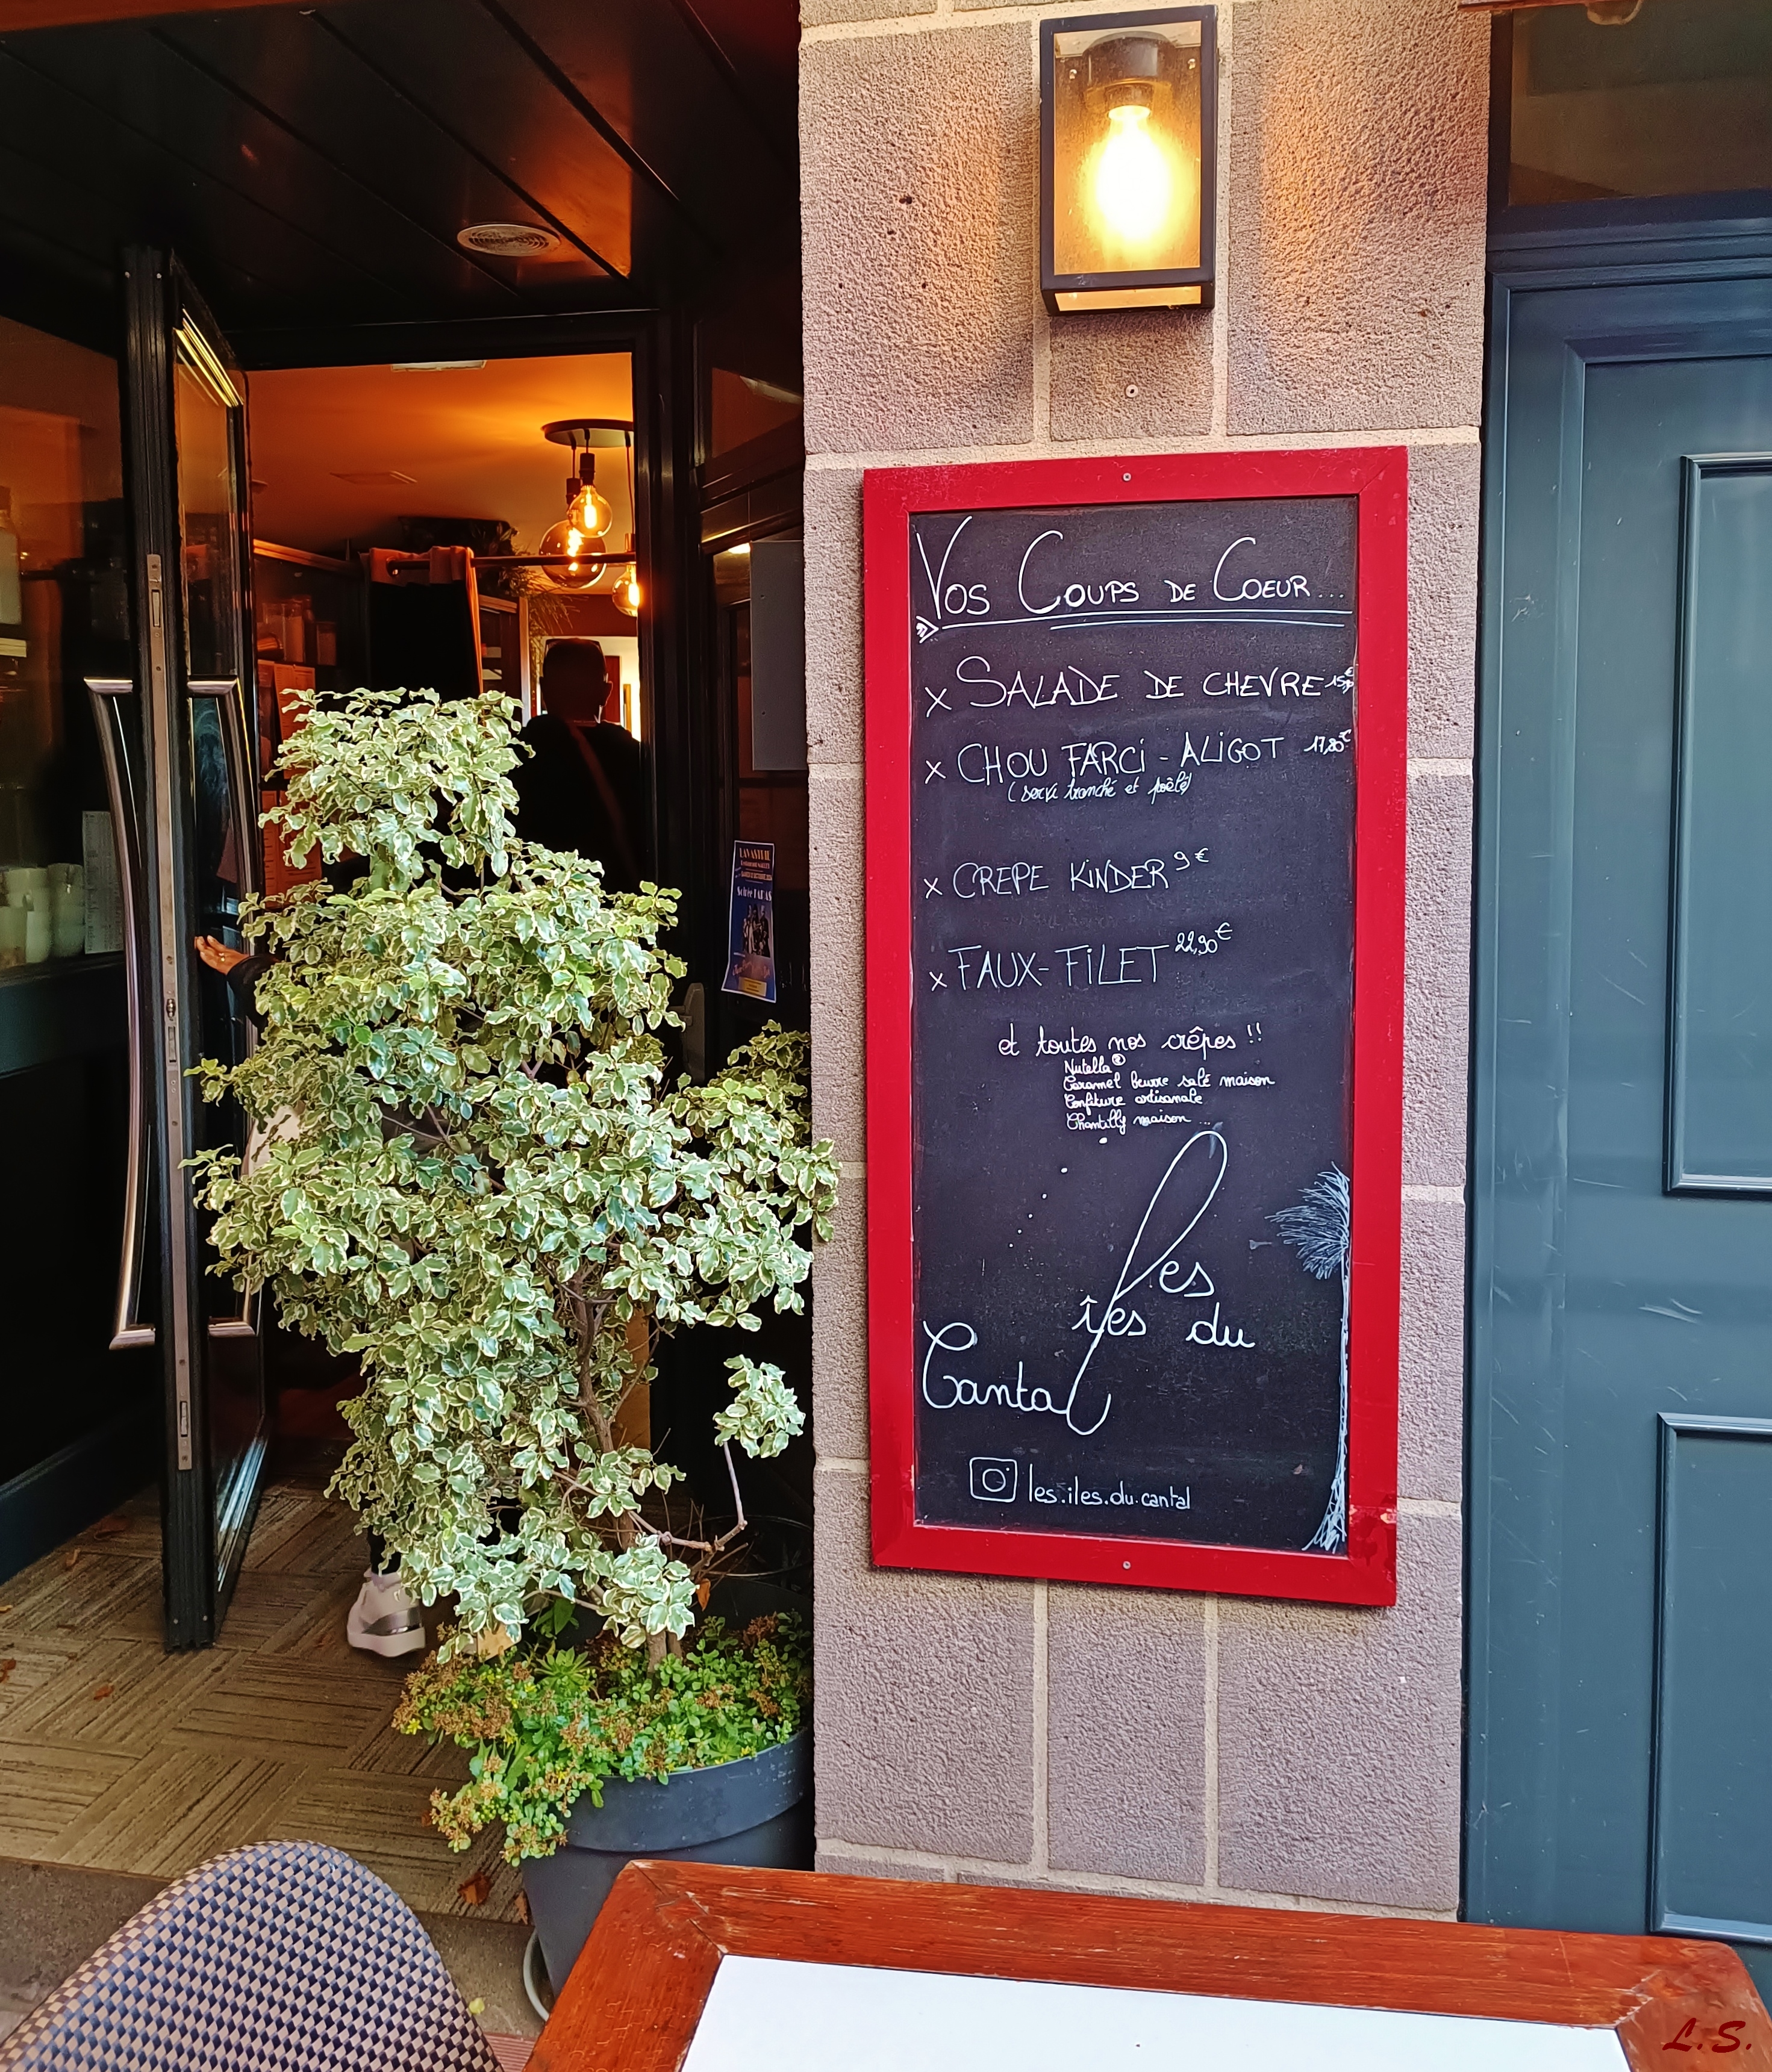 Vos Coups de Coeur...
x Salade de chevre
x Chou farci - Aligot 17,80€
(servi tranché et poêlé)
x Crepe Kinder 9€
x Faux-Filet 22,90€
et toutes nos crêpes !!
Nutella®
Caramel beurre salé maison
Confiture artisanale
Chantilly maison...
Les
îles du
Cantal
les.iles.du.cantal
Soirée TAPAS
L.S.